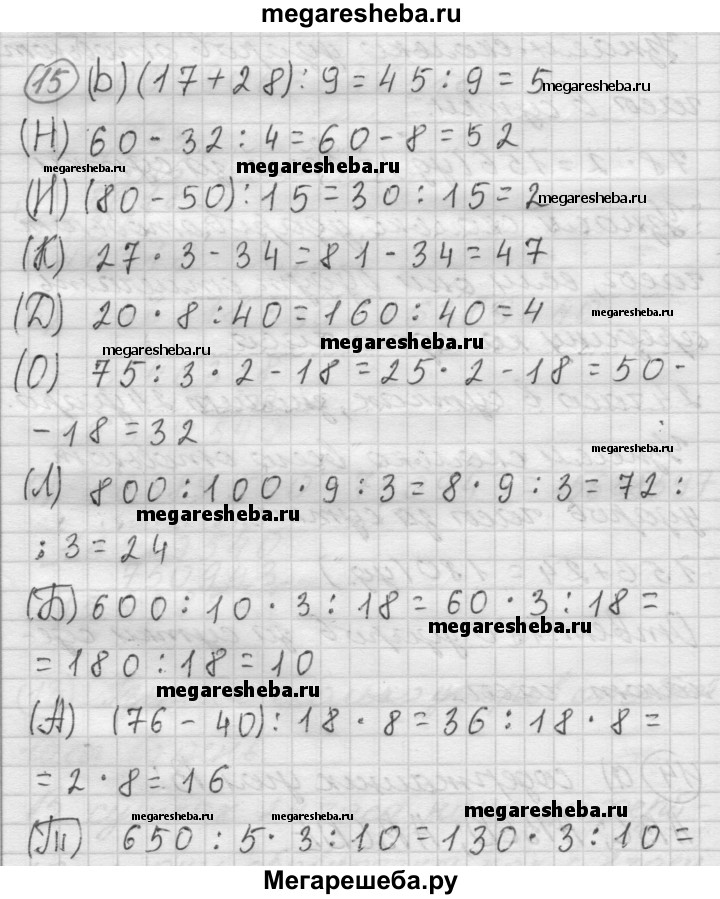 megaresheba.ru
15 (b) (17 + 28) : 9 = 45 : 9 = 5 megaresheba.ru
(Н) 60 - 32 : 4 = 60 - 8 = 52
megaresheba.ru megaresheba.ru
(И) (80 - 50) : 15 = 30 : 15 = 2 megaresheba.ru
(К) 27 · 3 - 34 = 81 - 34 = 47
(Д) 20 · 8 : 40 = 160 : 40 = 4 megaresheba.ru
megaresheba.ru megaresheba.ru
(О) 75 : 3 · 2 - 18 = 25 · 2 - 18 = 50 -
- 18 = 32
megaresheba.ru
(Л) 800 : 100 · 9 : 3 = 8 · 9 : 3 = 72 :
megaresheba.ru
: 3 = 24
(Б) 600 : 10 · 3 : 18 = 60 · 3 : 18 =
megaresheba.ru
= 180 : 18 = 10
megaresheba.ru
(А) (76 - 40) : 18 · 8 = 36 : 18 · 8 =
= 2 · 8 = 16
megaresheba.ru megaresheba.ru megaresheba.ru
(Т) 650 : 5 · 3 : 10 = 130 · 3 : 10 =
Мегарешеба.ру